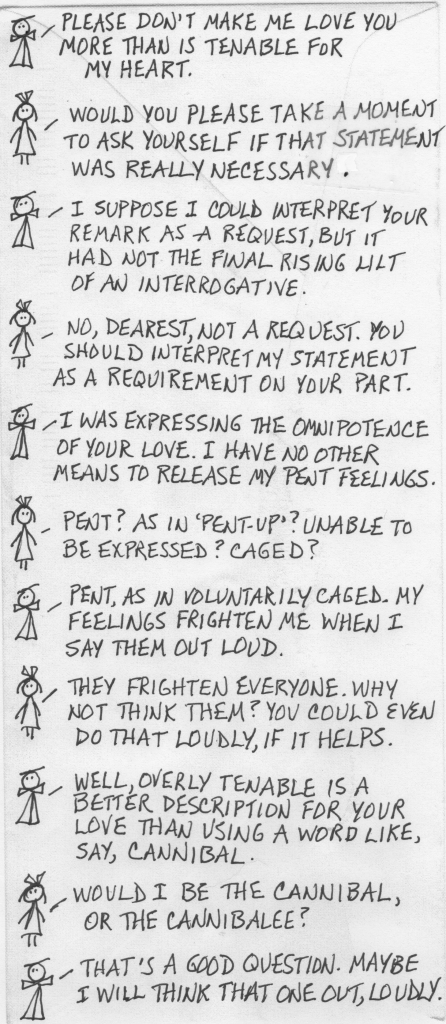 PLEASE DON'T MAKE ME LOVE YOU
MORE THAN IS TENABLE FOR
MY HEART.
WOULD YOU PLEASE TAKE A MOMENT
TO ASK YOURSELF IF THAT STATEMENT
WAS REALLY NECESSARY.
I SUPPOSE I COULD INTERPRET YOUR
REMARK AS A REQUEST, BUT IT
HAD NOT THE FINAL RISING LILT
OF AN INTERROGATIVE.
NO, DEAREST, NOT A REQUEST. YOU
SHOULD INTERPRET MY STATEMENT
AS A REQUIREMENT ON YOUR PART.
I WAS EXPRESSING THE OMNIPOTENCE
OF YOUR LOVE. I HAVE NO OTHER
MEANS TO RELEASE MY PENT FEELINGS.
PENT? AS IN 'PENT-UP'? UNABLE TO
BE EXPRESSED? CAGED?
PENT, AS IN VOLUNTARILY CAGED. MY
FEELINGS FRIGHTEN ME WHEN I
SAY THEM OUT LOUD.
THEY FRIGHTEN EVERYONE. WHY
NOT THINK THEM? YOU COULD EVEN
DO THAT LOUDLY, IF IT HELPS.
WELL, OVERLY TENABLE IS A
BETTER DESCRIPTION FOR YOUR
LOVE THAN USING A WORD LIKE,
SAY, CANNIBAL.
WOULD I BE THE CANNIBAL,
OR THE CANNIBALEE?
THAT'S A GOOD QUESTION. MAYBE
I WILL THINK THAT ONE OUT, LOUDLY.